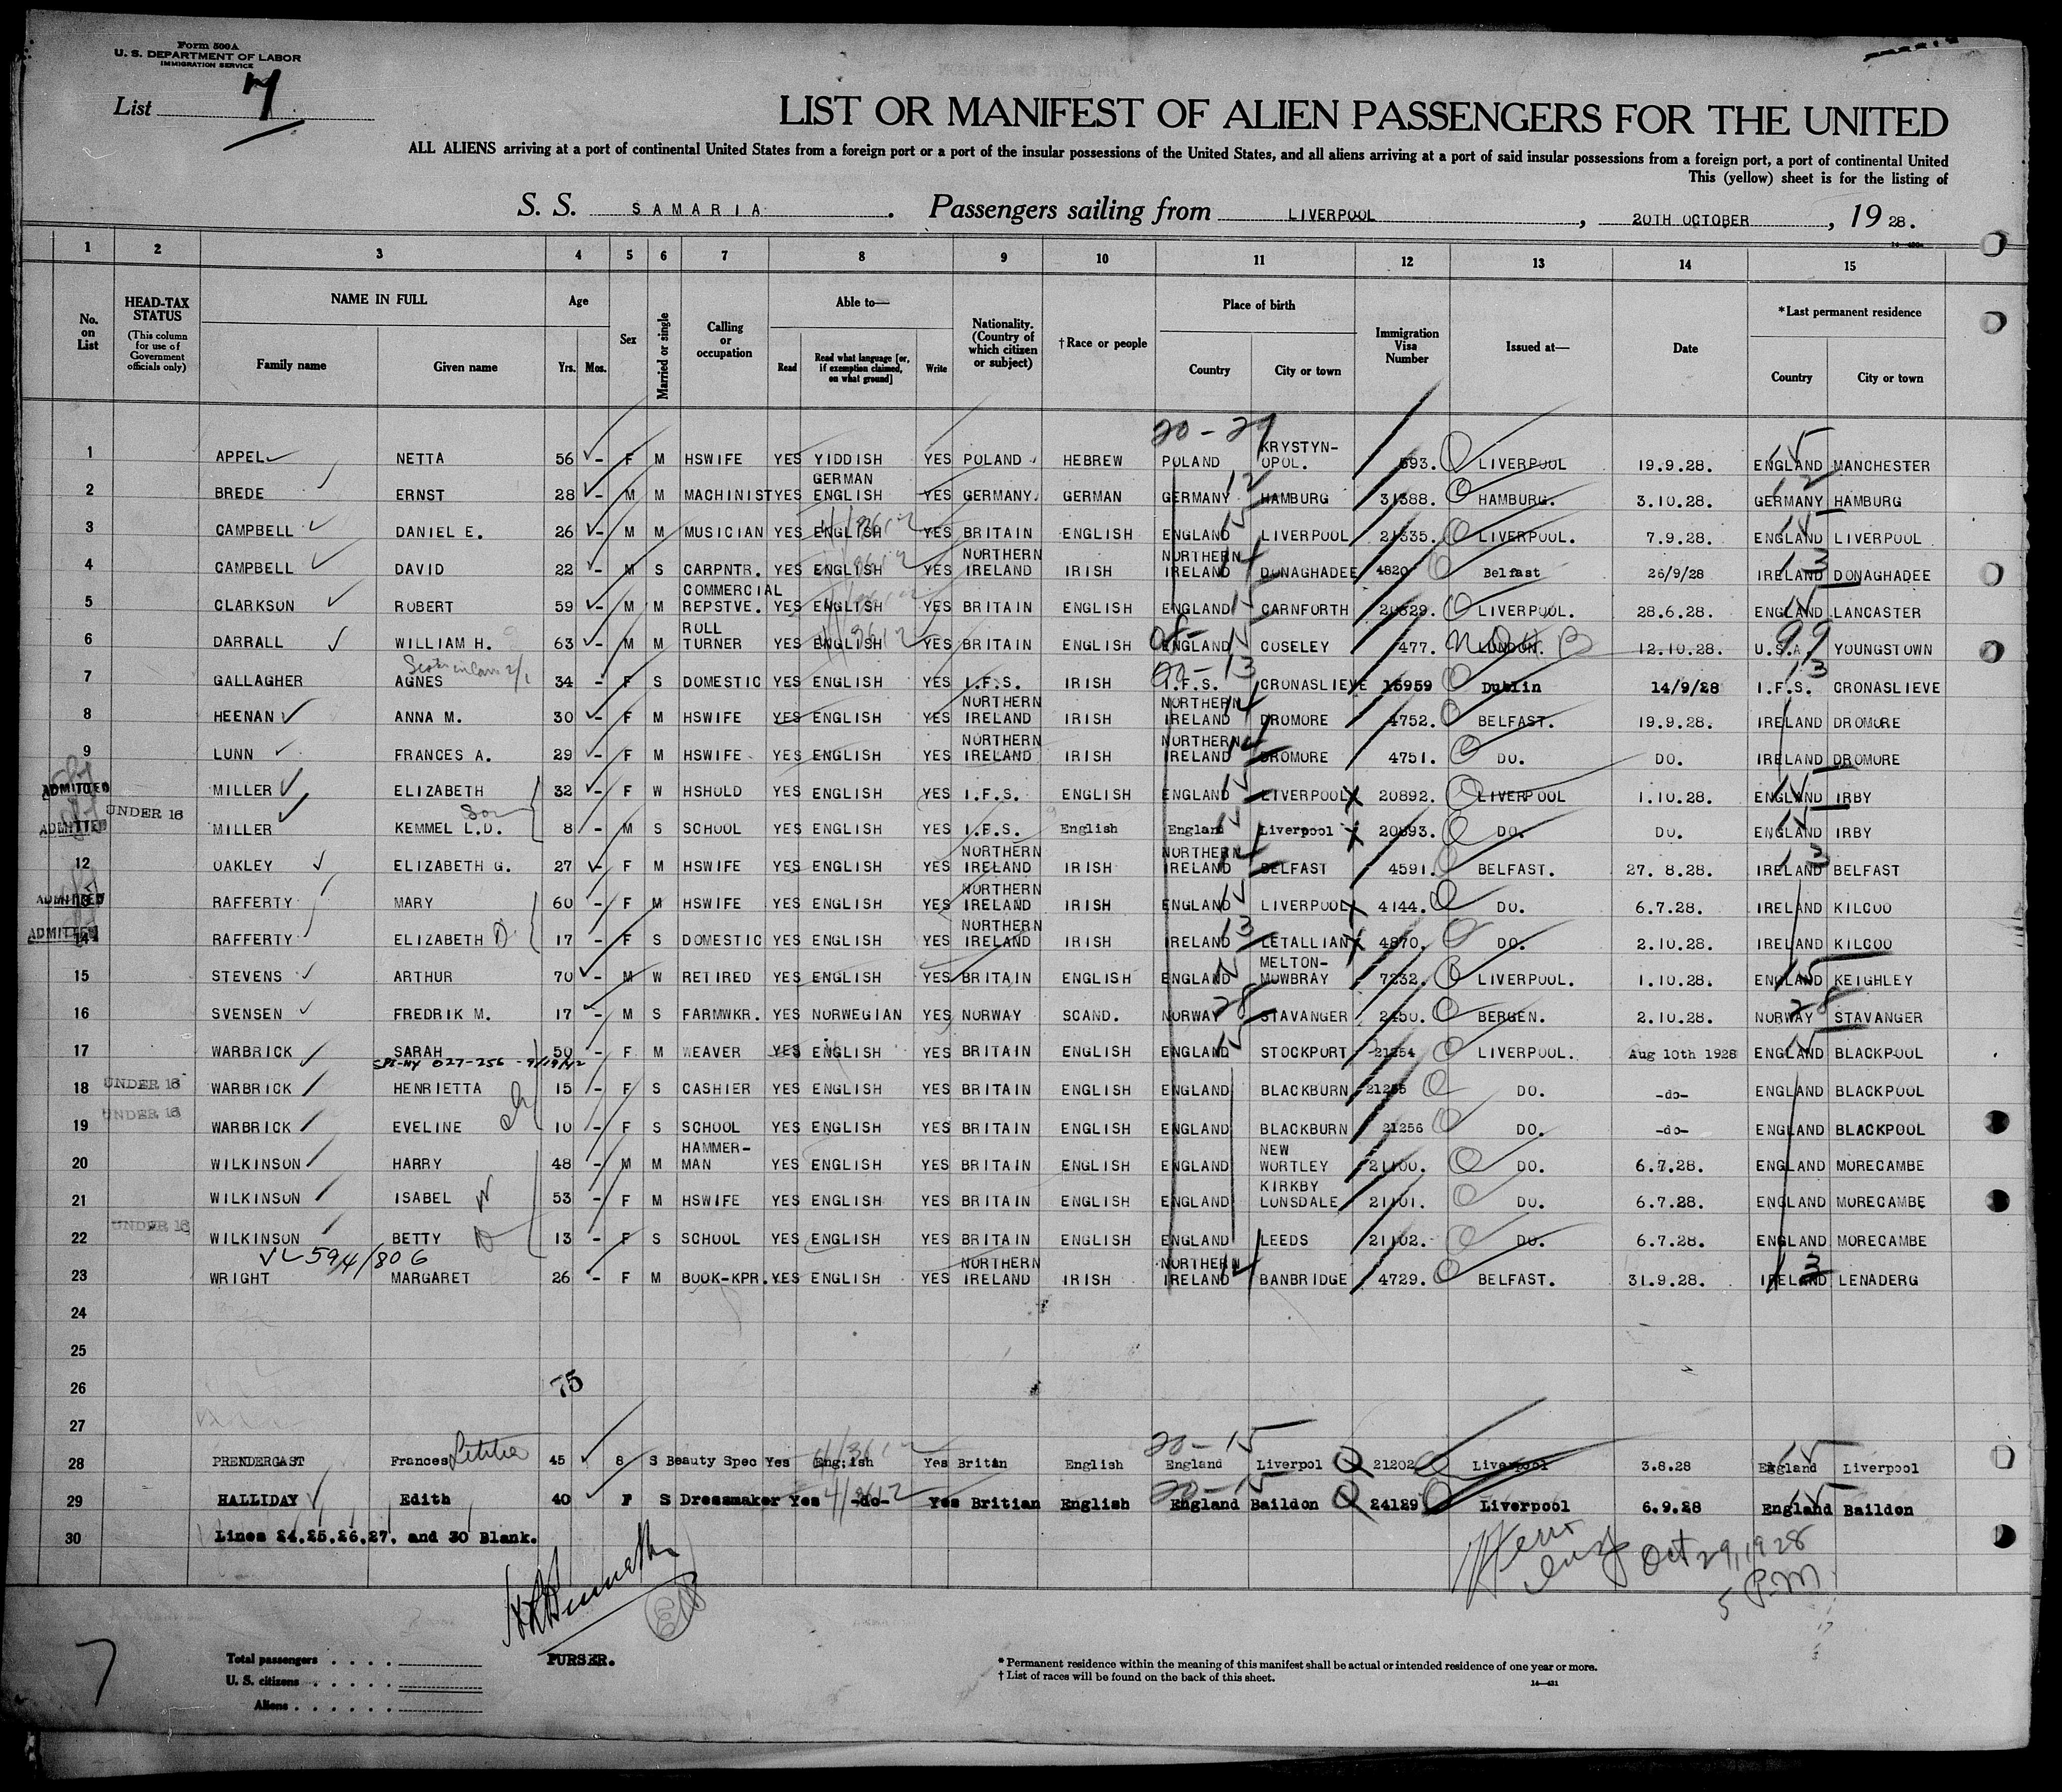 Form 500A
U. S. DEPARTMENT OF LABOR
IMMIGRATION SERVICE
List 7
LIST OR MANIFEST OF ALIEN PASSENGERS FOR THE UNITED
ALL ALIENS arriving at a port of continental United States from a foreign port or a port of the insular possessions of the United States, and all aliens arriving at a port of said insular possessions from a foreign port, a port of continental United
This (yellow) sheet is for the listing of
S. S. SAMARIA . Passengers sailing from LIVERPOOL , 20TH OCTOBER , 19 28.
1 2 3 4 5 6 7 8 9 10 11 12 13 14 15
No. on List
HEAD-TAX STATUS (This column for use of Government officials only)
NAME IN FULL
Family name Given name
Age
Yrs. Mos.
Sex
Married or single
Calling or occupation
Able to—
Read Read what language [or, if exemption claimed, on what ground] Write
Nationality. (Country of which citizen or subject)
†Race or people
Place of birth
Country City or town
Immigration Visa Number
Issued at—
Date
*Last permanent residence
Country City or town
20-27
1 APPEL NETTA 56 - F M HSWIFE YES YIDDISH YES POLAND HEBREW POLAND KRYSTYN-OPOL. 593. LIVERPOOL 19.9.28. ENGLAND MANCHESTER 15
2 BREDE ERNST 28 - M M MACHINIST YES GERMAN ENGLISH YES GERMANY. GERMAN GERMANY 12 HAMBURG 31388. HAMBURG. 3.10.28. GERMANY HAMBURG 12
3 CAMPBELL DANIEL E. 26 - M M MUSICIAN YES ENGLISH YES BRITAIN ENGLISH ENGLAND 15 LIVERPOOL 21335. LIVERPOOL. 7.9.28. ENGLAND LIVERPOOL 15
4 CAMPBELL DAVID 22 - M S CARPNTR. YES ENGLISH YES NORTHERN IRELAND IRISH NORTHERN IRELAND 14 DONAGHADEE 4820 Belfast 26/9/28 IRELAND DONAGHADEE 13
5 CLARKSON ROBERT 59 - M M COMMERCIAL REPSTVE. YES ENGLISH YES BRITAIN ENGLISH ENGLAND 15 CARNFORTH 20829. LIVERPOOL. 28.6.28. ENGLAND LANCASTER 15
6 DARRALL WILLIAM H. 63 - M M ROLL TURNER YES ENGLISH YES BRITAIN ENGLISH ENGLAND 15 COSELEY 477. LONDON. 12.10.28. U.S.A. YOUNGSTOWN 99
7 GALLAGHER AGNES 34 - F S DOMESTIC YES ENGLISH YES I.F.S. IRISH I.F.S. 20-13 CRONASLIEVE 15959 Dublin 14/9/28 I.F.S. CRONASLIEVE 13
8 HEENAN ANNA M. 30 - F M HSWIFE YES ENGLISH YES NORTHERN IRELAND IRISH NORTHERN IRELAND 14 DROMORE 4752. BELFAST. 19.9.28. IRELAND DROMORE
9 LUNN FRANCES A. 29 - F M HSWIFE YES ENGLISH YES NORTHERN IRELAND IRISH NORTHERN IRELAND 14 DROMORE 4751. DO. DO. IRELAND DROMORE
ADMITTED MILLER ELIZABETH 32 - F W HSHOLD YES ENGLISH YES I.F.S. ENGLISH ENGLAND 15 LIVERPOOL 20892. LIVERPOOL 1.10.28. ENGLAND IRBY 15
ADMITTED UNDER 16 MILLER KEMMEL L.D. Son 8 - M S SCHOOL YES ENGLISH YES I.F.S. English England Liverpool 20893. DO. DO. ENGLAND IRBY 15
12 OAKLEY ELIZABETH G. 27 - F M HSWIFE YES ENGLISH YES NORTHERN IRELAND IRISH NORTHERN IRELAND 14 BELFAST 4591. BELFAST. 27. 8.28. IRELAND BELFAST 13
ADMITTED 13 RAFFERTY MARY 60 - F M HSWIFE YES ENGLISH YES NORTHERN IRELAND IRISH ENGLAND 15 LIVERPOOL 4144. DO. 6.7.28. IRELAND KILCOO
ADMITTED 14 RAFFERTY ELIZABETH D 17 - F S DOMESTIC YES ENGLISH YES NORTHERN IRELAND IRISH IRELAND 13 LETALLIAN 4870. DO. 2.10.28. IRELAND KILCOO
15 STEVENS ARTHUR 70 - M W RETIRED YES ENGLISH YES BRITAIN ENGLISH ENGLAND 15 MELTON-MOWBRAY 7232. LIVERPOOL. 1.10.28. ENGLAND KEIGHLEY 15
16 SVENSEN FREDRIK M. 17 - M S FARMWKR. YES NORWEGIAN YES NORWAY SCAND. NORWAY 28 STAVANGER 2450. BERGEN. 2.10.28. NORWAY STAVANGER 28
17 WARBRICK SARAH 50 - F M WEAVER YES ENGLISH YES BRITAIN ENGLISH ENGLAND 15 STOCKPORT 21254 LIVERPOOL. Aug 10th 1928 ENGLAND BLACKPOOL 15
UNDER 16 18 WARBRICK HENRIETTA 15 - F S CASHIER YES ENGLISH YES BRITAIN ENGLISH ENGLAND BLACKBURN 21255 DO. -do- ENGLAND BLACKPOOL
UNDER 16 19 WARBRICK EVELINE 10 - F S SCHOOL YES ENGLISH YES BRITAIN ENGLISH ENGLAND BLACKBURN 21256 DO. -do- ENGLAND BLACKPOOL
20 WILKINSON HARRY 48 - M M HAMMER-MAN YES ENGLISH YES BRITAIN ENGLISH ENGLAND NEW WORTLEY 21100. DO. 6.7.28. ENGLAND MORECAMBE
21 WILKINSON ISABEL W 53 - F M HSWIFE YES ENGLISH YES BRITAIN ENGLISH ENGLAND KIRKBY LONSDALE 21101. DO. 6.7.28. ENGLAND MORECAMBE
UNDER 16 22 WILKINSON BETTY D 13 - F S SCHOOL YES ENGLISH YES BRITAIN ENGLISH ENGLAND LEEDS 21102. DO. 6.7.28. ENGLAND MORECAMBE
VL 594/806
23 WRIGHT MARGARET 26 - F M BOOK-KPR. YES ENGLISH YES NORTHERN IRELAND IRISH NORTHERN IRELAND 14 BANBRIDGE 4729. BELFAST. 31.9.28. IRELAND LENADERG 13
24
25
26 75
27
28 PRENDERGAST Frances Letitia 45 S S Beauty Spec Yes Eng;ish Yes Britan English England 20-15 Liverpol 21202 Liverpool 3.8.28 England Liverpool 15
29 HALLIDAY Edith 40 F S Dressmaker Yes -do- Yes Britian English England 20-15 Baildon 24129 Liverpool 6.9.28 England Baildon 15
30 Lines 24,25,26,27, and 30 Blank.
Oct 29, 1928
5 P.M
7
PURSER.
Total passengers
U. S. citizens
Aliens
* Permanent residence within the meaning of this manifest shall be actual or intended residence of one year or more.
† List of races will be found on the back of this sheet.
14—431